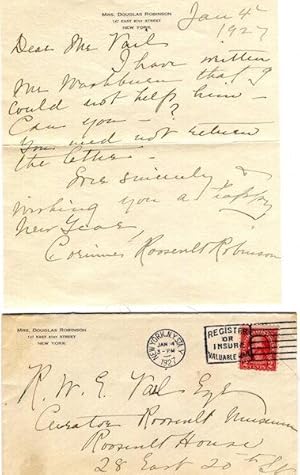 MRS. DOUGLAS ROBINSON
EAST 61ST STREET
NEW YORK
Jan 4th
1927
Dear Mr Vail
I have written
Mr Washburn that I
could not help him -
Can you - ?
You need not return
the letter -
Ever sincerely &
wishing you a happy
New Year,
Corinne Roosevelt Robinson
MRS. DOUGLAS ROBINSON
EAST 61ST STREET
NEW YORK
NEW YORK, N.Y.
JAN 4
5-PM
1927
REGISTER
OR
INSURE
VALUABLE MAIL
R. W. G. Vail Esq
Curator Roosevelt Museum
Roosevelt House
28 East 20th St